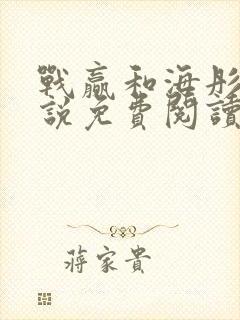 戰贏和海彤
說免費閱讀
蔣家貴